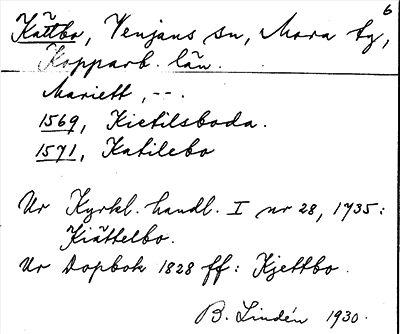 6
Kättbo, Venjans sn, Mora tg,
Kopparb. län.
Mariett, --.
1569, Kietilsboda.
1571, Katilebo
Ur Kyrkl. handl. I nr 28, 1735:
Kiättelbo.
Ur Dopbok 1828 ff: Kjettbo.
B. Lindén 1930.